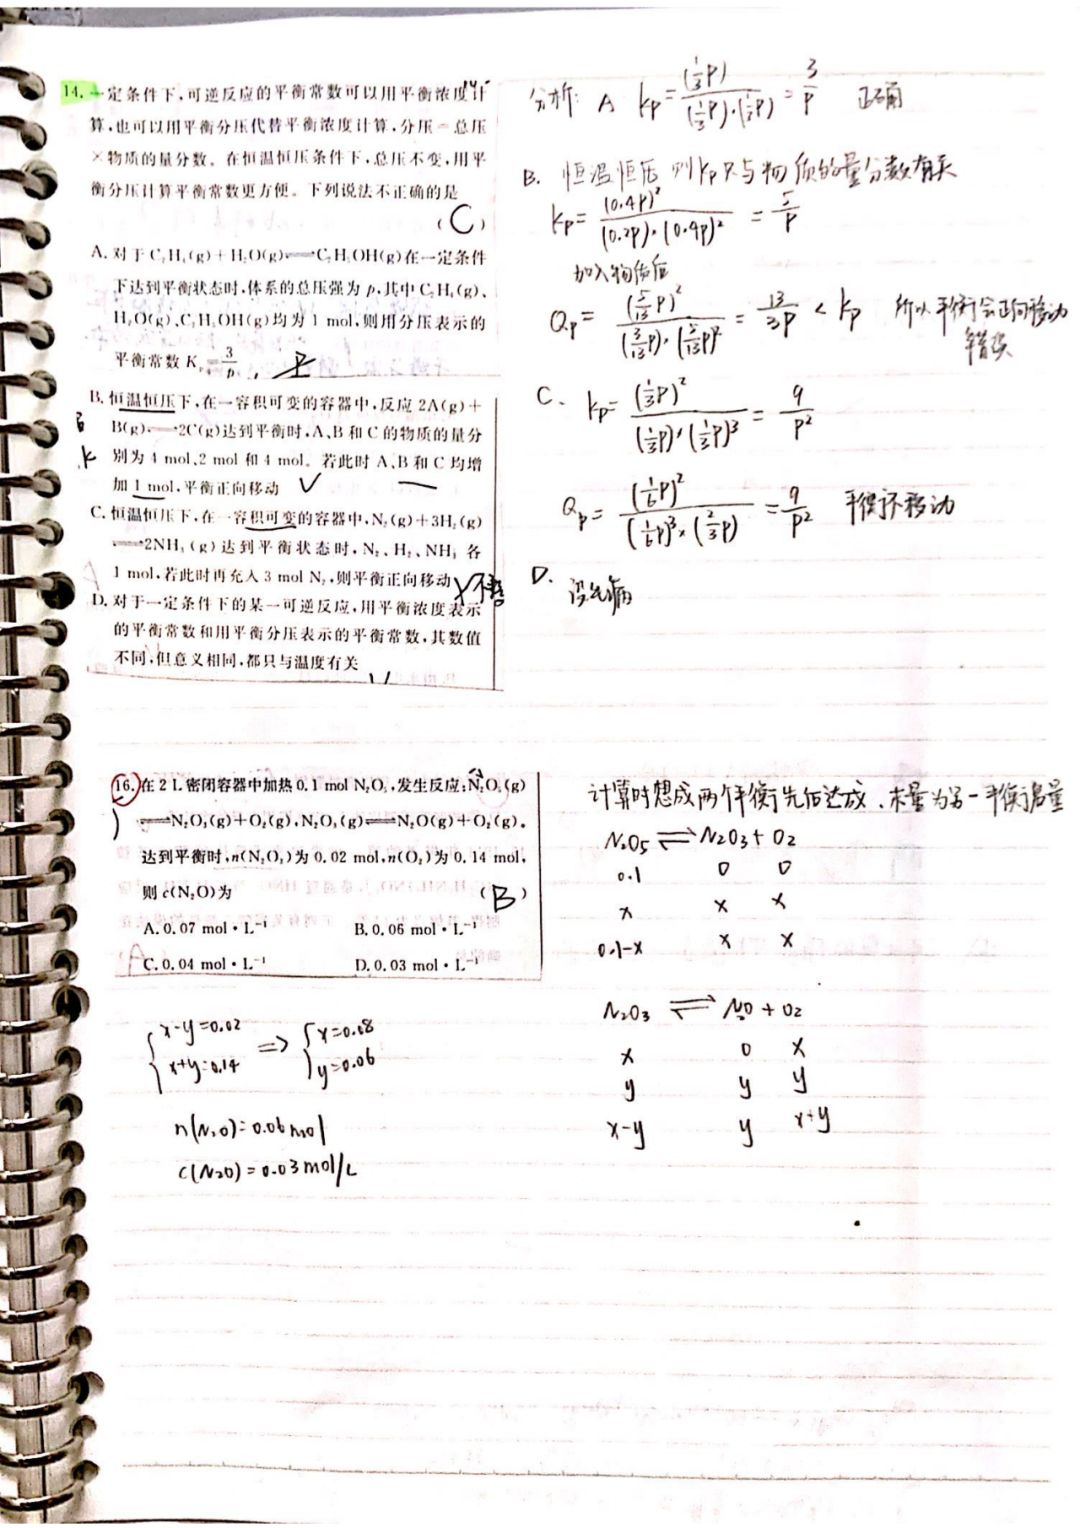 14. 一定条件下,可逆反应的平衡常数可以用平衡浓度计
算,也可以用平衡分压代替平衡浓度计算,分压=总压
×物质的量分数。在恒温恒压条件下,总压不变,用平
衡分压计算平衡常数更方便。下列说法不正确的是
(C)
A. 对于C₂H₄(g)+H₂O(g)⇌C₂H₅OH(g)在一定条件
下达到平衡状态时,体系的总压强为p,其中C₂H₄(g)、
H₂O(g)、C₂H₅OH(g)均为1 mol,则用分压表示的
平衡常数Kₚ=3/p
B. 恒温恒压下,在一容积可变的容器中,反应2A(g)+
B(g)⇌2C(g)达到平衡时,A、B和C的物质的量分
别为4 mol、2 mol和4 mol。若此时A、B和C均增
加1 mol,平衡正向移动 √
C. 恒温恒压下,在一容积可变的容器中,N₂(g)+3H₂(g)
⇌2NH₃(g)达到平衡状态时,N₂、H₂、NH₃各
1 mol,若此时再充入3 mol N₂,则平衡正向移动 ×不移
D. 对于一定条件下的某一可逆反应,用平衡浓度表示
的平衡常数和用平衡分压表示的平衡常数,其数值
不同,但意义相同,都只与温度有关 √
分析: A Kp=(⅓P)/((⅓P)·(⅓P))=3/P 正确
B. 恒温恒压 则Kp只与物质的量分数有关
Kp=(0.4P)²/((0.2P)·(0.4P)²)=5/P
加入物质后
Qp=(5/13P)²/((3/13P)·(5/13P)²)=13/3P<Kp 所以平衡会正向移动
错误
C. Kp=(⅓P)²/((⅓P)·(⅓P)³)=9/P²
Qp=(1/6P)²/((1/6P)³×(2/3P))=9/P² 平衡不移动
D. 没毛病
16. 在2 L密闭容器中加热0.1 mol N₂O₅,发生反应:N₂O₅(g)
⇌N₂O₃(g)+O₂(g),N₂O₃(g)⇌N₂O(g)+O₂(g)。
达到平衡时,n(N₂O₃)为0.02 mol,n(O₂)为0.14 mol,
则c(N₂O)为 (B)
A. 0.07 mol·L⁻¹ B. 0.06 mol·L⁻¹
C. 0.04 mol·L⁻¹ D. 0.03 mol·L⁻¹
计算时想成两个平衡先后达成,末量为另一平衡始量
N₂O₅⇌N₂O₃+O₂
0.1 0 0
x x x
0.1-x x x
N₂O₃⇌N₂O+O₂
x 0 x
y y y
x-y y x+y
{x-y=0.02 ⇒ {x=0.08
x+y=0.14 y=0.06
n(N₂O)=0.06mol
c(N₂O)=0.03mol/L